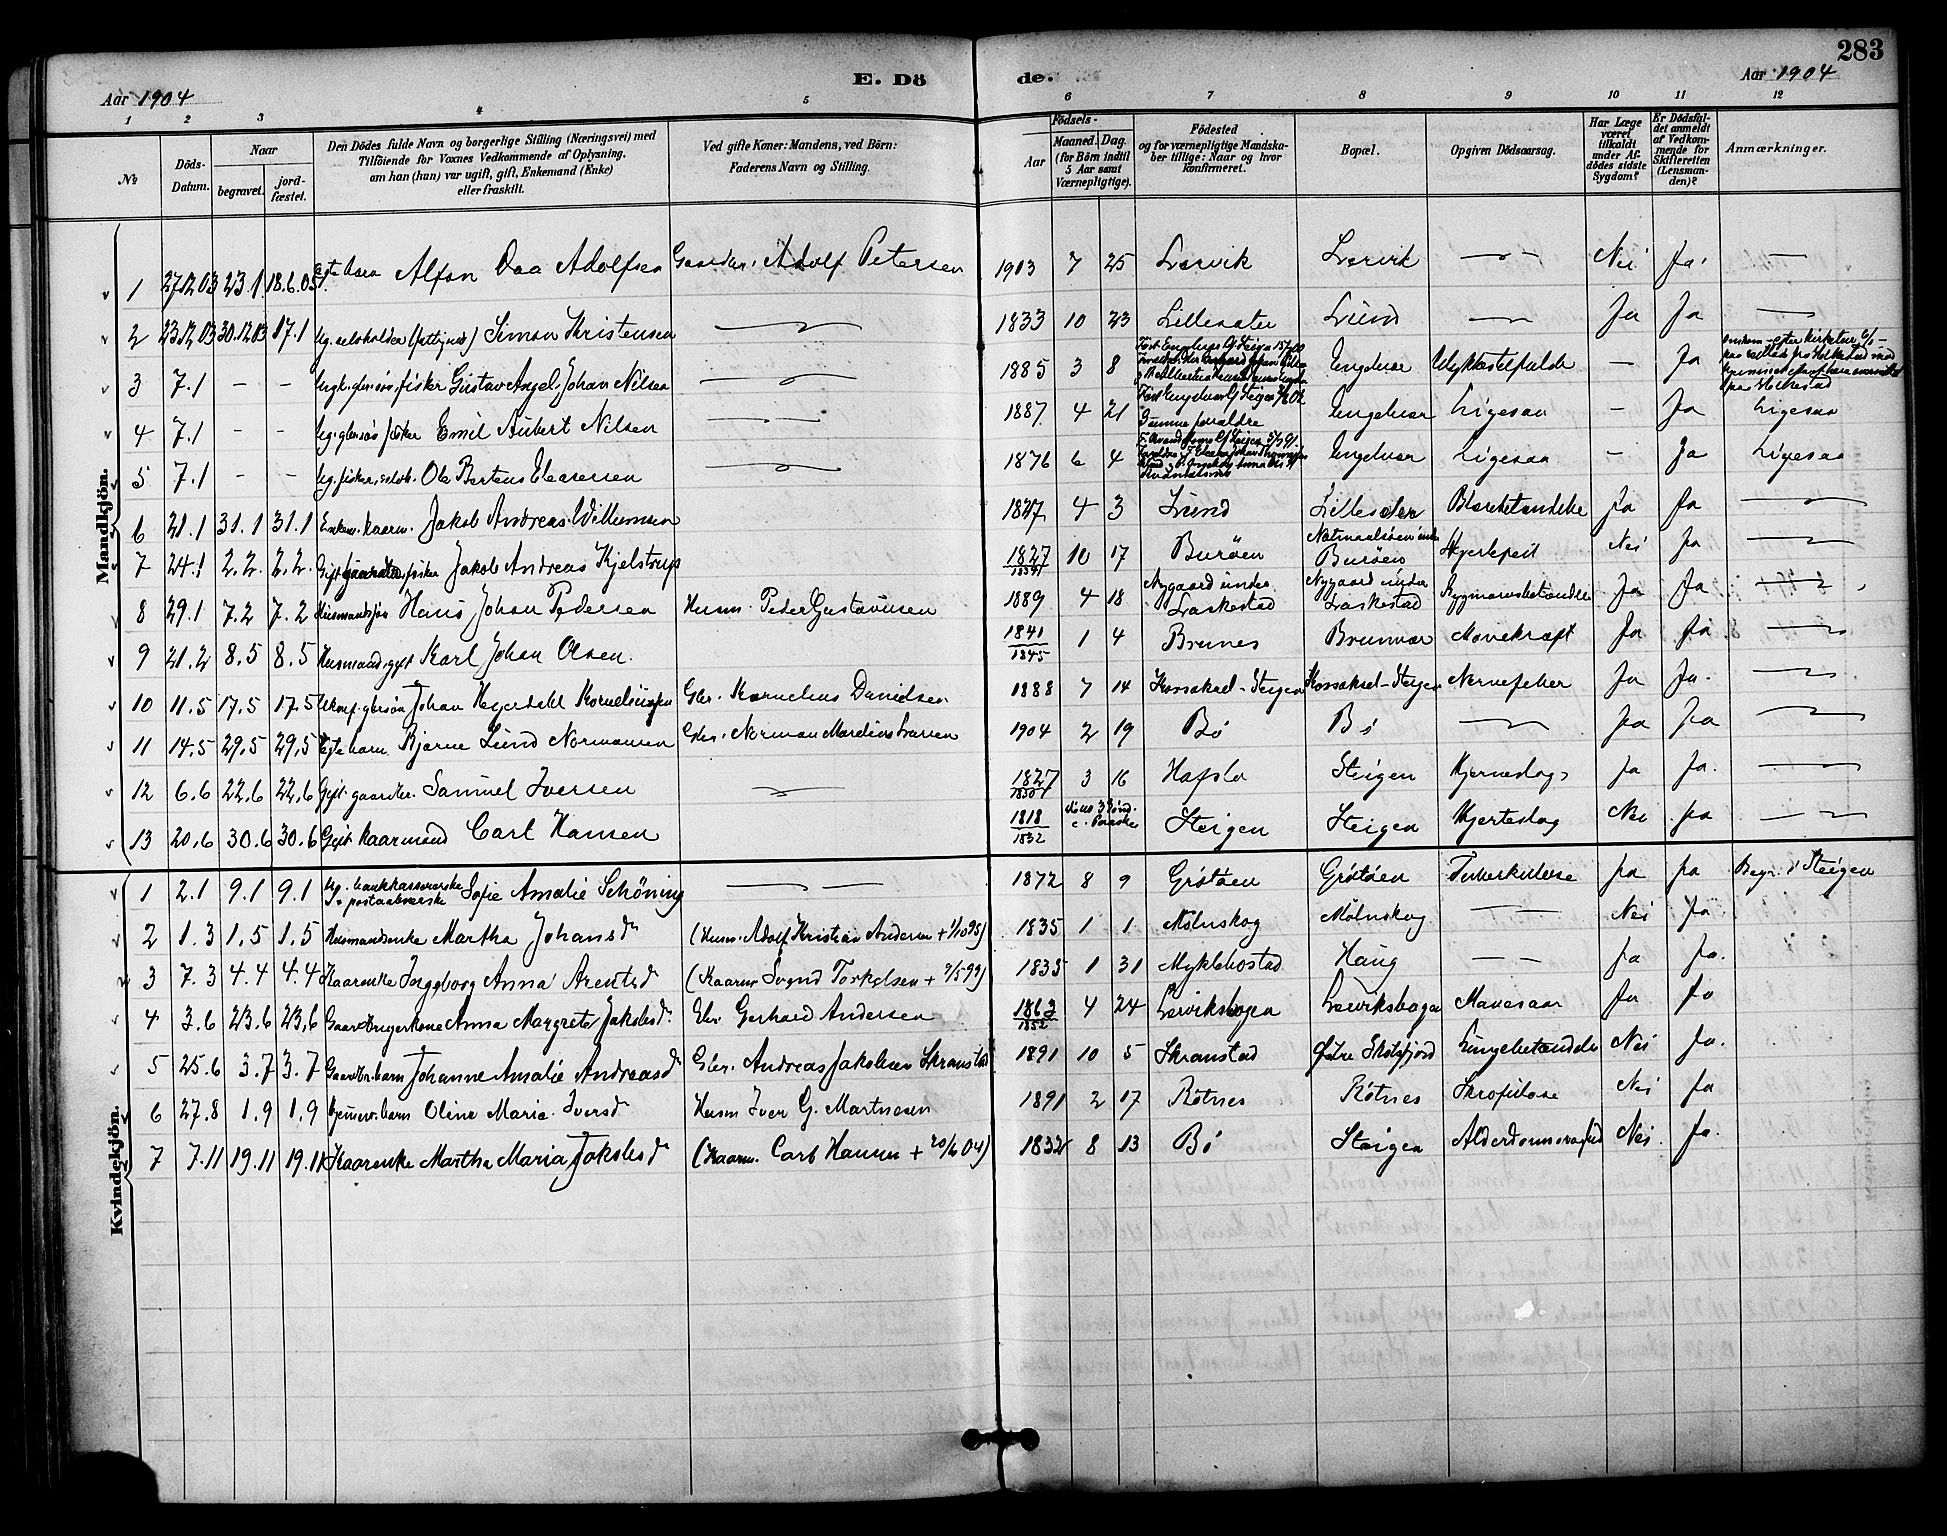 283
E. Dö de.
Aar 1904
Aar 1904
1 2 3 4 5 6 7 8 9 10 11 12
No
Döds-Datum.
Naar
begravet.
jord-fæstet.
Den Dödes fulde Navn og borgerlige Stilling (Næringsvei) med
Tilföiende for Voxnes Vedkommende af Oplysning,
om han (hun) var ugift, gift, Enkemand (Enke)
eller fraskilt.
Ved gifte Koner: Mandens, ved Börn:
Faderens Navn og Stilling.
Födsels-
Aar
Maaned. Dag.
(for Börn indtil
5 Aar samt
Værnepligtige).
Födested
og for værnepligtige Mandska-
ber tillige: Naar og hvor
konfirmeret.
Bopæl.
Opgiven Dödsaarsag.
Har Læge
været
tilkaldt
under Af-
dödes sidste
Sygdom?
Er Dödsfal-
det anmeldt
af Vedkom-
mende for
Skifteretten
(Lensman-
den)?
Anmærkninger.
Mandkjön.
1 27.12.03 23.1 18.6.05 Egte barn Alfon Daa Adolfsen Gaardbr. Adolf Petersen 1903 7 25 Lervik Lervik — Nei Ja —
2 23.12.03 30.12.03 17.1 Simon Kristensen — 1833 10 23 Lilleseter Lund — Ja Ja —
3 7.1 – – fisker Gustav Angel Johan Nilsen — 1885 3 8 Engelvær Ulykkestilfælde – Ja
4 7.1 – – Ug. gbrsøn fisker Emil Aubert Nilsen — 1887 4 21 Samme forældre Engelvær Ligesaa – Ja Ligesaa
5 7.1 – – Ug. fisker, selvh. Ole Bertens Eleasersen — 1876 6 4 Engelvær Ligesaa – Ja Ligesaa
6 21.1 31.1 31.1 Enkem. kaarm. Jakob Andreas Willumsen 4 3 Lund Ja Ja —
7 24.1 2.2. 2.2. Gift fisker Jakob Andreas Kjelstrup 1827 10 17 Burøen Burøen Nei Ja —
8 29.1 7.2 7.2 Husmandssøn Hans Johan Pedersen Husm. Peder Gustavsen 1889 4 18 Nygaard under Laskestad Nygaard under Laskestad Ja Ja —
9 21.2 8.5 8.5 Husmand, gift Karl Johan Olsen. 1841 1845 1 4 Brunes Brunvær Mavekræft Ja Ja —
10 11.5 17.5 17.5 Ukonf. gbrsøn Johan Hegerdahl Korneliussen Gbr. Kornelius Danielsen 1888 7 14 – Steigen – Steigen Nervefeber Ja Ja. —
11 14.5 29.5 29.5 Egte barn Bjarne Lund Normansen Gbr. Norman Mardens Ivarsen 1904 2 19 Bø Bø — Ja Ja —
12 6.6 22.6 22.6 Gift. gaardbr. Samuel Iversen — 1827 3 16 Hafslo Steigen Hjerneslag Ja Ja. —
13 20.6 30.6 30.6 Gift Kaarmand Carl Hansen 1818 1832 Steigen Steigen Hjerteslag Nei Ja —
Kvindekjön.
1 2.1 9.1 9.1 Sofie Amalie Schöning — — 1872 8 9 Grøtøen Grøtøen Tuberkulose Ja Ja Begr. i Steigen
2 1.3 1.5 1.5 Husmandsenke Martha Johansd. (Husm. Adolf Kristian Andersen + 1/10 95) 1835 1 1 Mølnskog Mølnskog — Nei Ja
3 7.3 4.4 4.4 Kaarenke Ingeborg Anna Arentsd (Kaarm. Svend Torkelsen + 9/5 99) 1835 1 31 Myklebostad Haug — Ja Ja.
4 3.6 23.6 23.6 Gaardbrugerkone Anna Margrete Jakobsd. Gbr. Gerhard Andersen 1863 1852 4 24 Lerviksbogen Lerviksbogen Mavesaar Ja Ja
5 25.6 3.7 3.7 Gaardbr. barn Johanne Amalie Andreasd. Gbr. Andreas Jakobsen Skranstad 1891 10 5 Skranstad Øvre Skotsfjord Lungebetændelse Nei Ja.
6 27.8 1.9 1.9 Hjemmev. barn Oline Maria Iversd Husm. Iver G. Martnesen 1891 2 17 Røtnes Røtnes Skrofulose Nei Ja
7 7.11 19.11 19.11 Kaarenke Martha Maria Jakobsd (Kaarm. Carl Hansen + 20/6 04) 1832 8 13 Bø Steigen Alderdomssvaghed Nei. Ja.